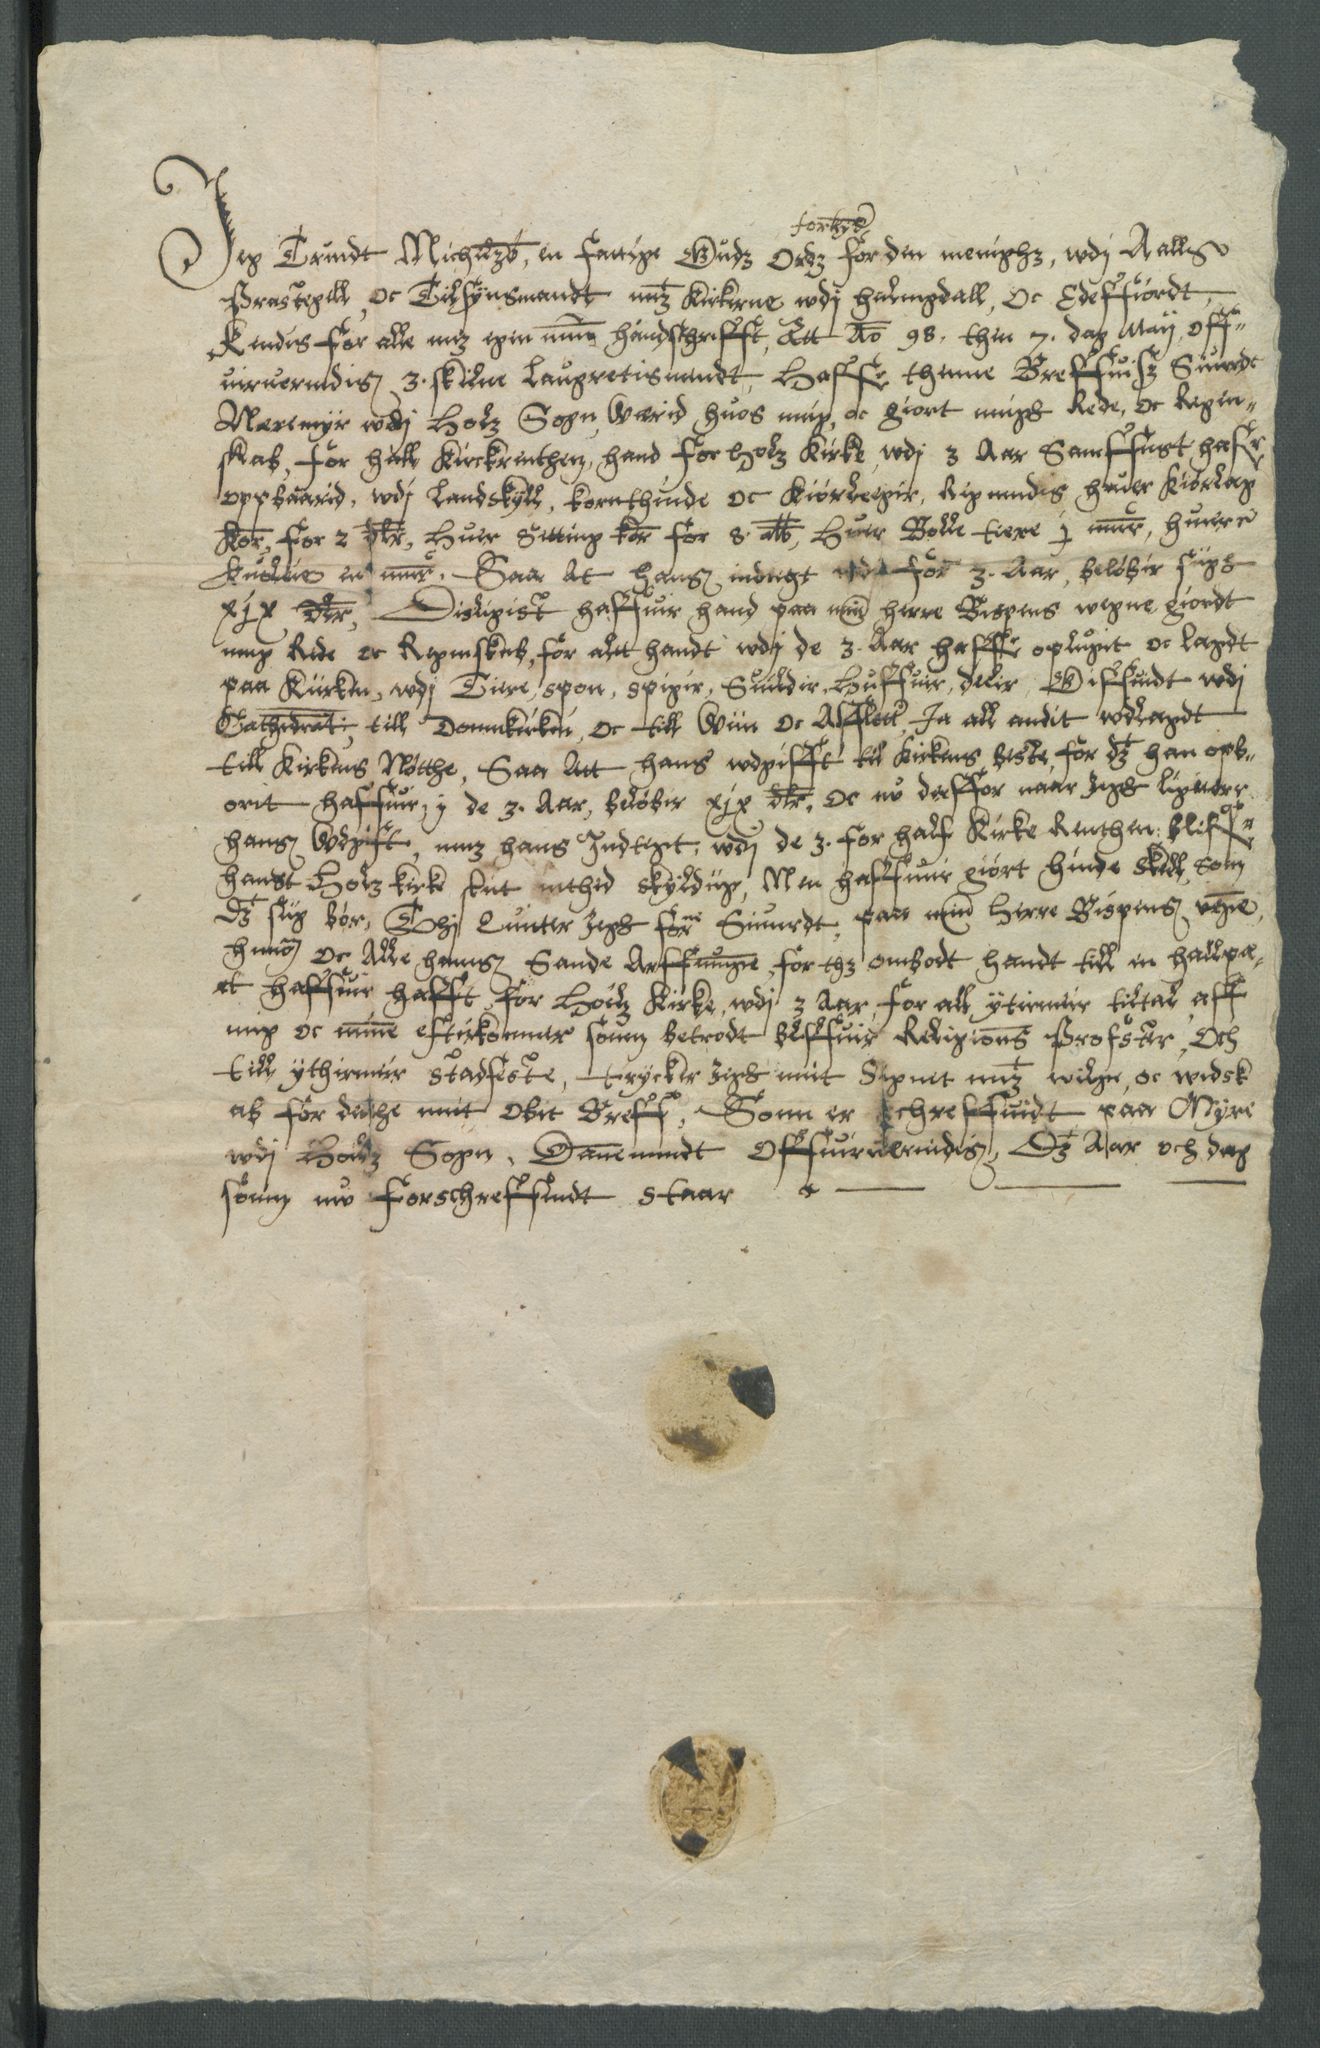 forkynd
Jeg Trundt Michelzøn, en fattige Gudz Ordz for den menighz, wdj Aals
Prastegill, oc Tilsynsmandt mz Kirkerne wdj halingdall, oc Edeffiordt,
Kendis for alle mz egen min håndschrifft, Att Ao 98. then 7. dag Maij, off-
uiruerindis 3. skilne Laugretismendt, Haffr thenne Breffuisz Siuerdt
Næremyr wdj Holz Sogn, wærid huos mig, oc giort migh Rede, oc Regen-
skab, for hall Kirckrenthen, hand for Holz Kirke wdj 3 Aar Samffust hafr
oppbaarid, wdj Landskyll, kornthinde oc Kiørleegir, Regnindis huer Kiørlag
Korn, for 2 dlr, huer Setting korn for 8 alb, huer Bolle tiere j mrc, huer
en mrc. Saa at hans indtegt wdj for 3. Aar, beløbir sigh
xjx dlr, Disligist haffuir hand paa min herre Bispens wegne giordt
mig Rede oc Regenskab, for allt handt wdj de 3. Aar haffr oplagit oc lagdt
paa Kirken, wdj Tiere, spon, spigir, Suildir, Huffuir, delir, Giffuidt wdj
Cathedrat: till Domkirken, oc till Wiin oc Afflett, Ja all andit wdlagdt
till Kirkens Nøtthe, Saa Att hans wdgifft til Kirkens beste, for dz han opb-
orit haffuir, j de 3. Aar, beløbir xjx dlr. oc nu derffor naar Jegh lignerr
hans Wdgift, mz hans Jndtegt, wdj de 3. for half Kirke Renthen: blifr
handt Holz kirke slut inthid skyldig, Men haffuir giort hinde skell, som
dz sig bør, Thj Quiter Jegh forne Siuerdt, paa min herre Bispens wegne,
hannom oc Alle hanns Sande Arffuinge, for thz ombodt handt till en halpa-
rt haffuir hafft, for Holz Kirke, wdj 3 Aar, for all ytirmeir tiltal, aff
mig oc minne eftirkommer som betrodt bliffuir Religions Profster, Och
till ythirmeir stadfeste, trycker Jegh mit Signet mz wilge, oc widsk
ab for dethe mit obit Breff, Som er schreffuidt paa Myre
wdj Holz Sogn, Dannemendt Offuiruerindis, Dz Aar och dag
som nu forschreffuidt staar